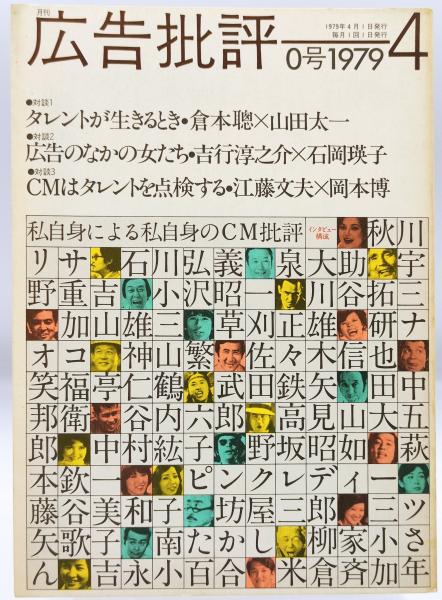 月刊
広告批評
0号1979
4
1979年4月1日発行
毎月1回1日発行
●対談1
タレントが生きるとき・倉本聰×山田太一
●対談2
広告のなかの女たち・吉行淳之介×石岡瑛子
●対談3
CMはタレントを点検する・江藤文夫×岡本博
私自身による私自身のCM批評
インタビュー
構成
秋川
リサ 石川弘義 泉大助 宇
野重吉 小沢昭一 川谷拓三
加山雄三 草刈正雄 研ナ
オコ 神山繁 佐々木信也
笑福亭仁鶴 武田鉄矢 田中
邦衛 谷内六郎 高見山大五
郎 中村紘子 野坂昭如 萩
本欽一 ピンクレディー
藤谷美和子 坊屋三郎 三ツ
矢歌子 南たかし 柳家小さ
ん 吉永小百合 米倉斉加年